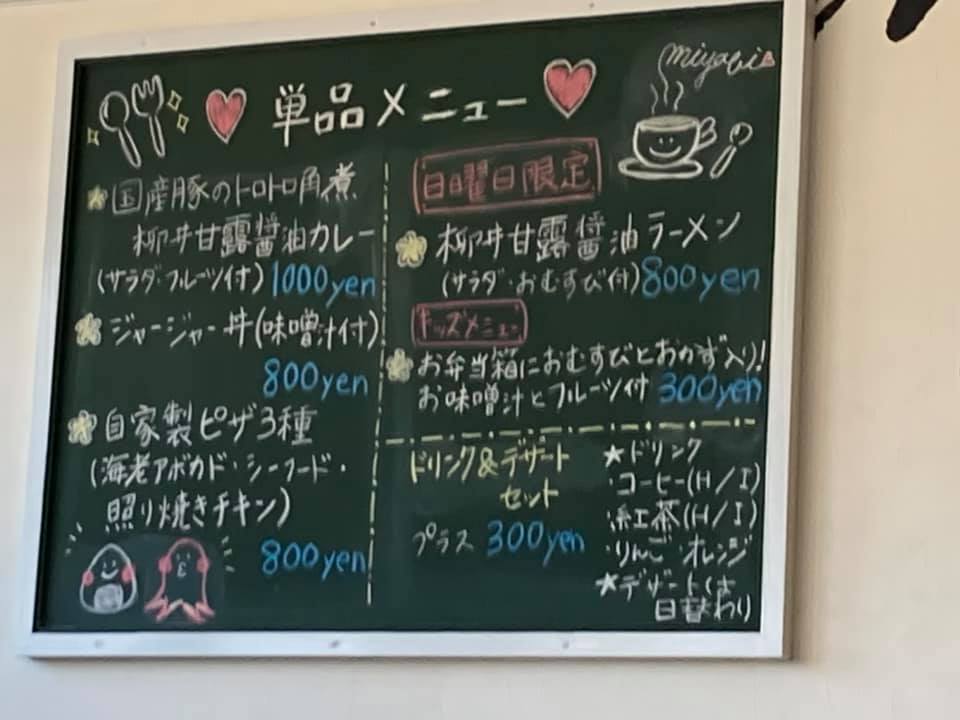 miyabi
単品メニュー
国産豚のトロトロ角煮
柳井甘露醤油カレー
(サラダ・フルーツ付) 1000yen
ジャージャー丼(味噌汁付)
800yen
自家製ピザ3種
(海老アボカド・シーフード・
照り焼きチキン)
800yen
日曜日限定
柳井甘露醤油ラーメン
(サラダ・おむすび付) 800yen
キッズメニュー
お弁当箱におむすびとおかず入り!
お味噌汁とフルーツ付 300yen
ドリンク&デザート
セット
プラス 300yen
★ドリンク
・コーヒー(H/I)
・紅茶(H/I)
・りんご・オレンジ
★デザートは
日替わり